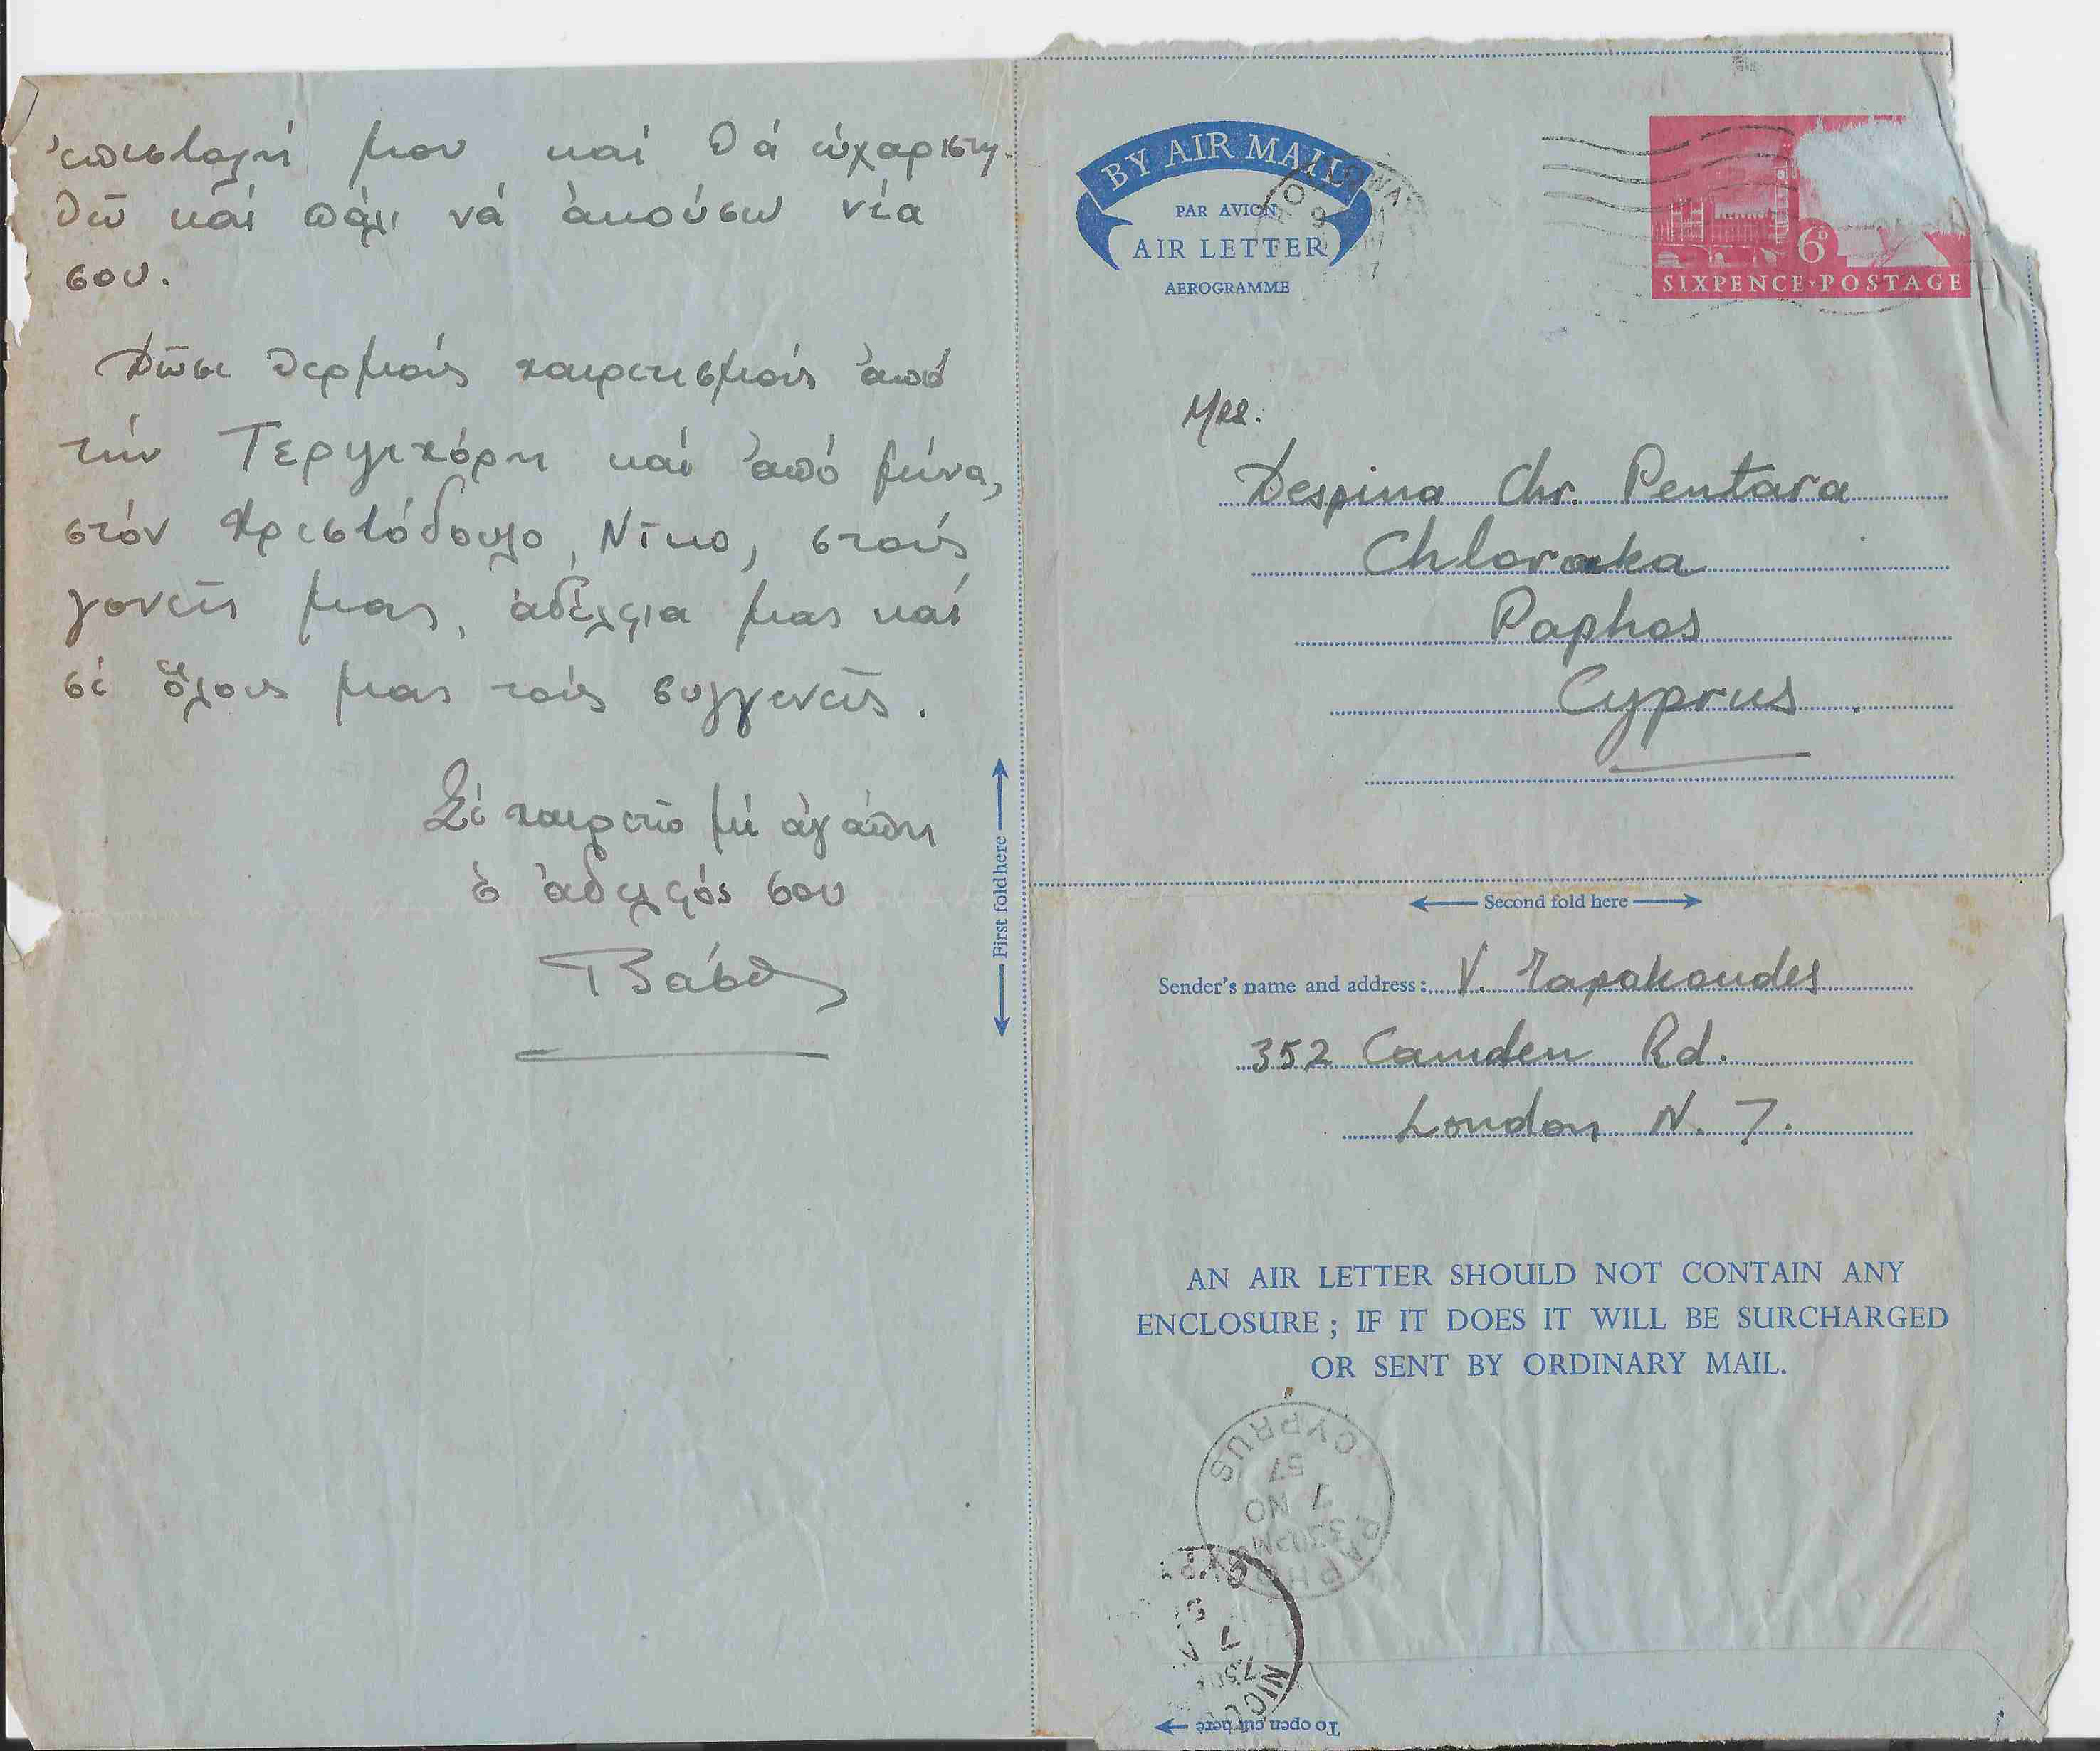 ἐπιστολή μου καί θά εὐχαριστη-
θῶ καί πάλι νά ἀκούσω νέα
σου.
Δῶσε θερμούς χαιρετισμούς ἀπό
τήν Τερψιχόρη καί ἀπό μένα,
στόν Χριστόδουλο, Νῖκο, στούς
γονεῖς μας, ἀδέλφια μας καί
σέ ὅλους μας τούς συγγενεῖς.
Σέ χαιρετῶ μέ ἀγάπη
ὁ ἀδελφός σου
Βάσος
First fold here
BY AIR MAIL
PAR AVION
AIR LETTER
AEROGRAMME
6D
SIXPENCE·POSTAGE
Mrs.
Despina Chr. Pentara
Chloraka
Paphos
Cyprus
Second fold here
Sender's name and address: V. Tapakoudes
352 Camden Rd.
London N. 7.
AN AIR LETTER SHOULD NOT CONTAIN ANY
ENCLOSURE; IF IT DOES IT WILL BE SURCHARGED
OR SENT BY ORDINARY MAIL.
PAPHOS
7 NO
57
CYPRUS
To open cut here